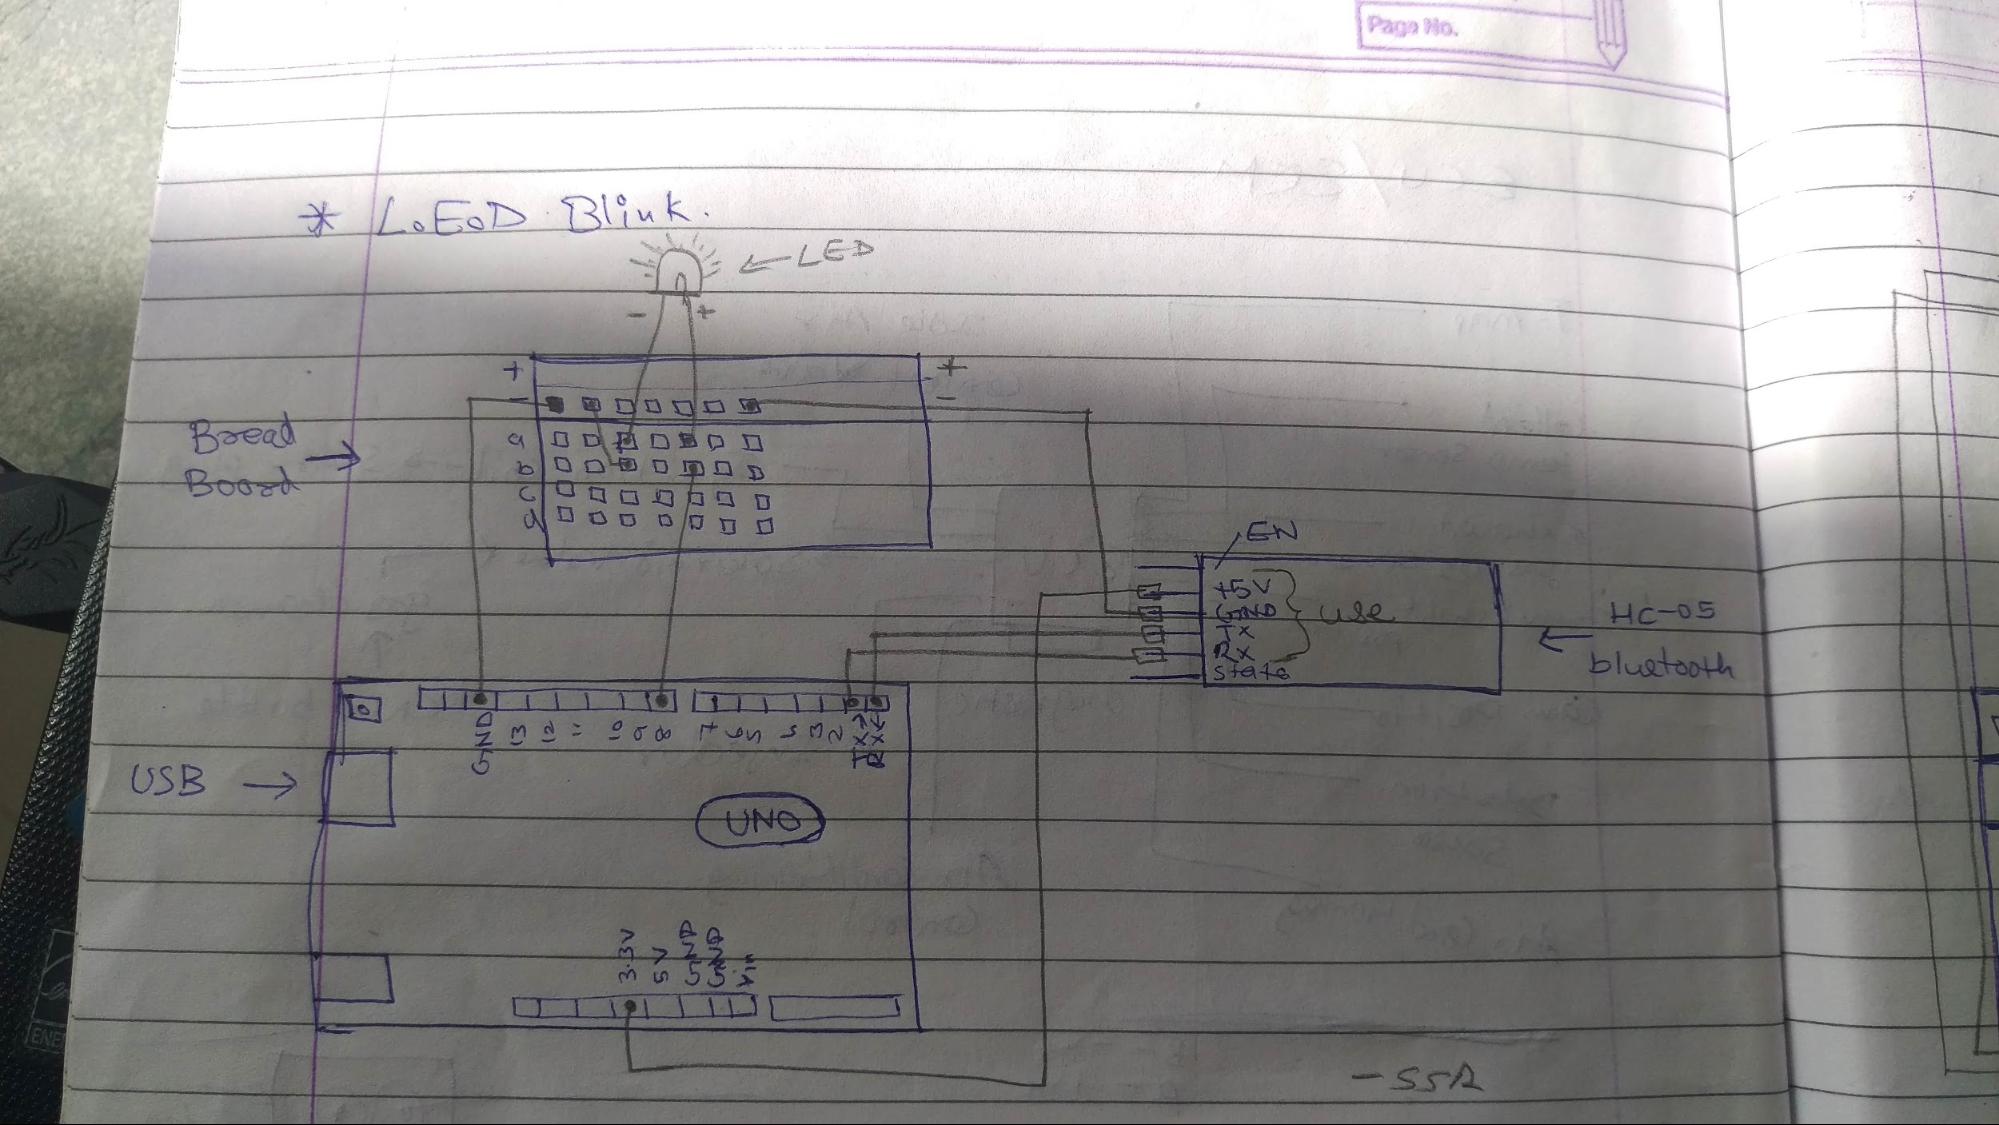 Page No.
* L.E.D Blink.
← LED
- +
+ +
- -
a
b
c
d
Bread
Board →
EN
+5V
GND
Tx
Rx
State
use
HC-05
← bluetooth
GND 13 12 11 10 9 8 7 6 5 4 3 2 Tx> Rx<
USB →
UNO
3.3V 5V GND GND Vin
- SSR